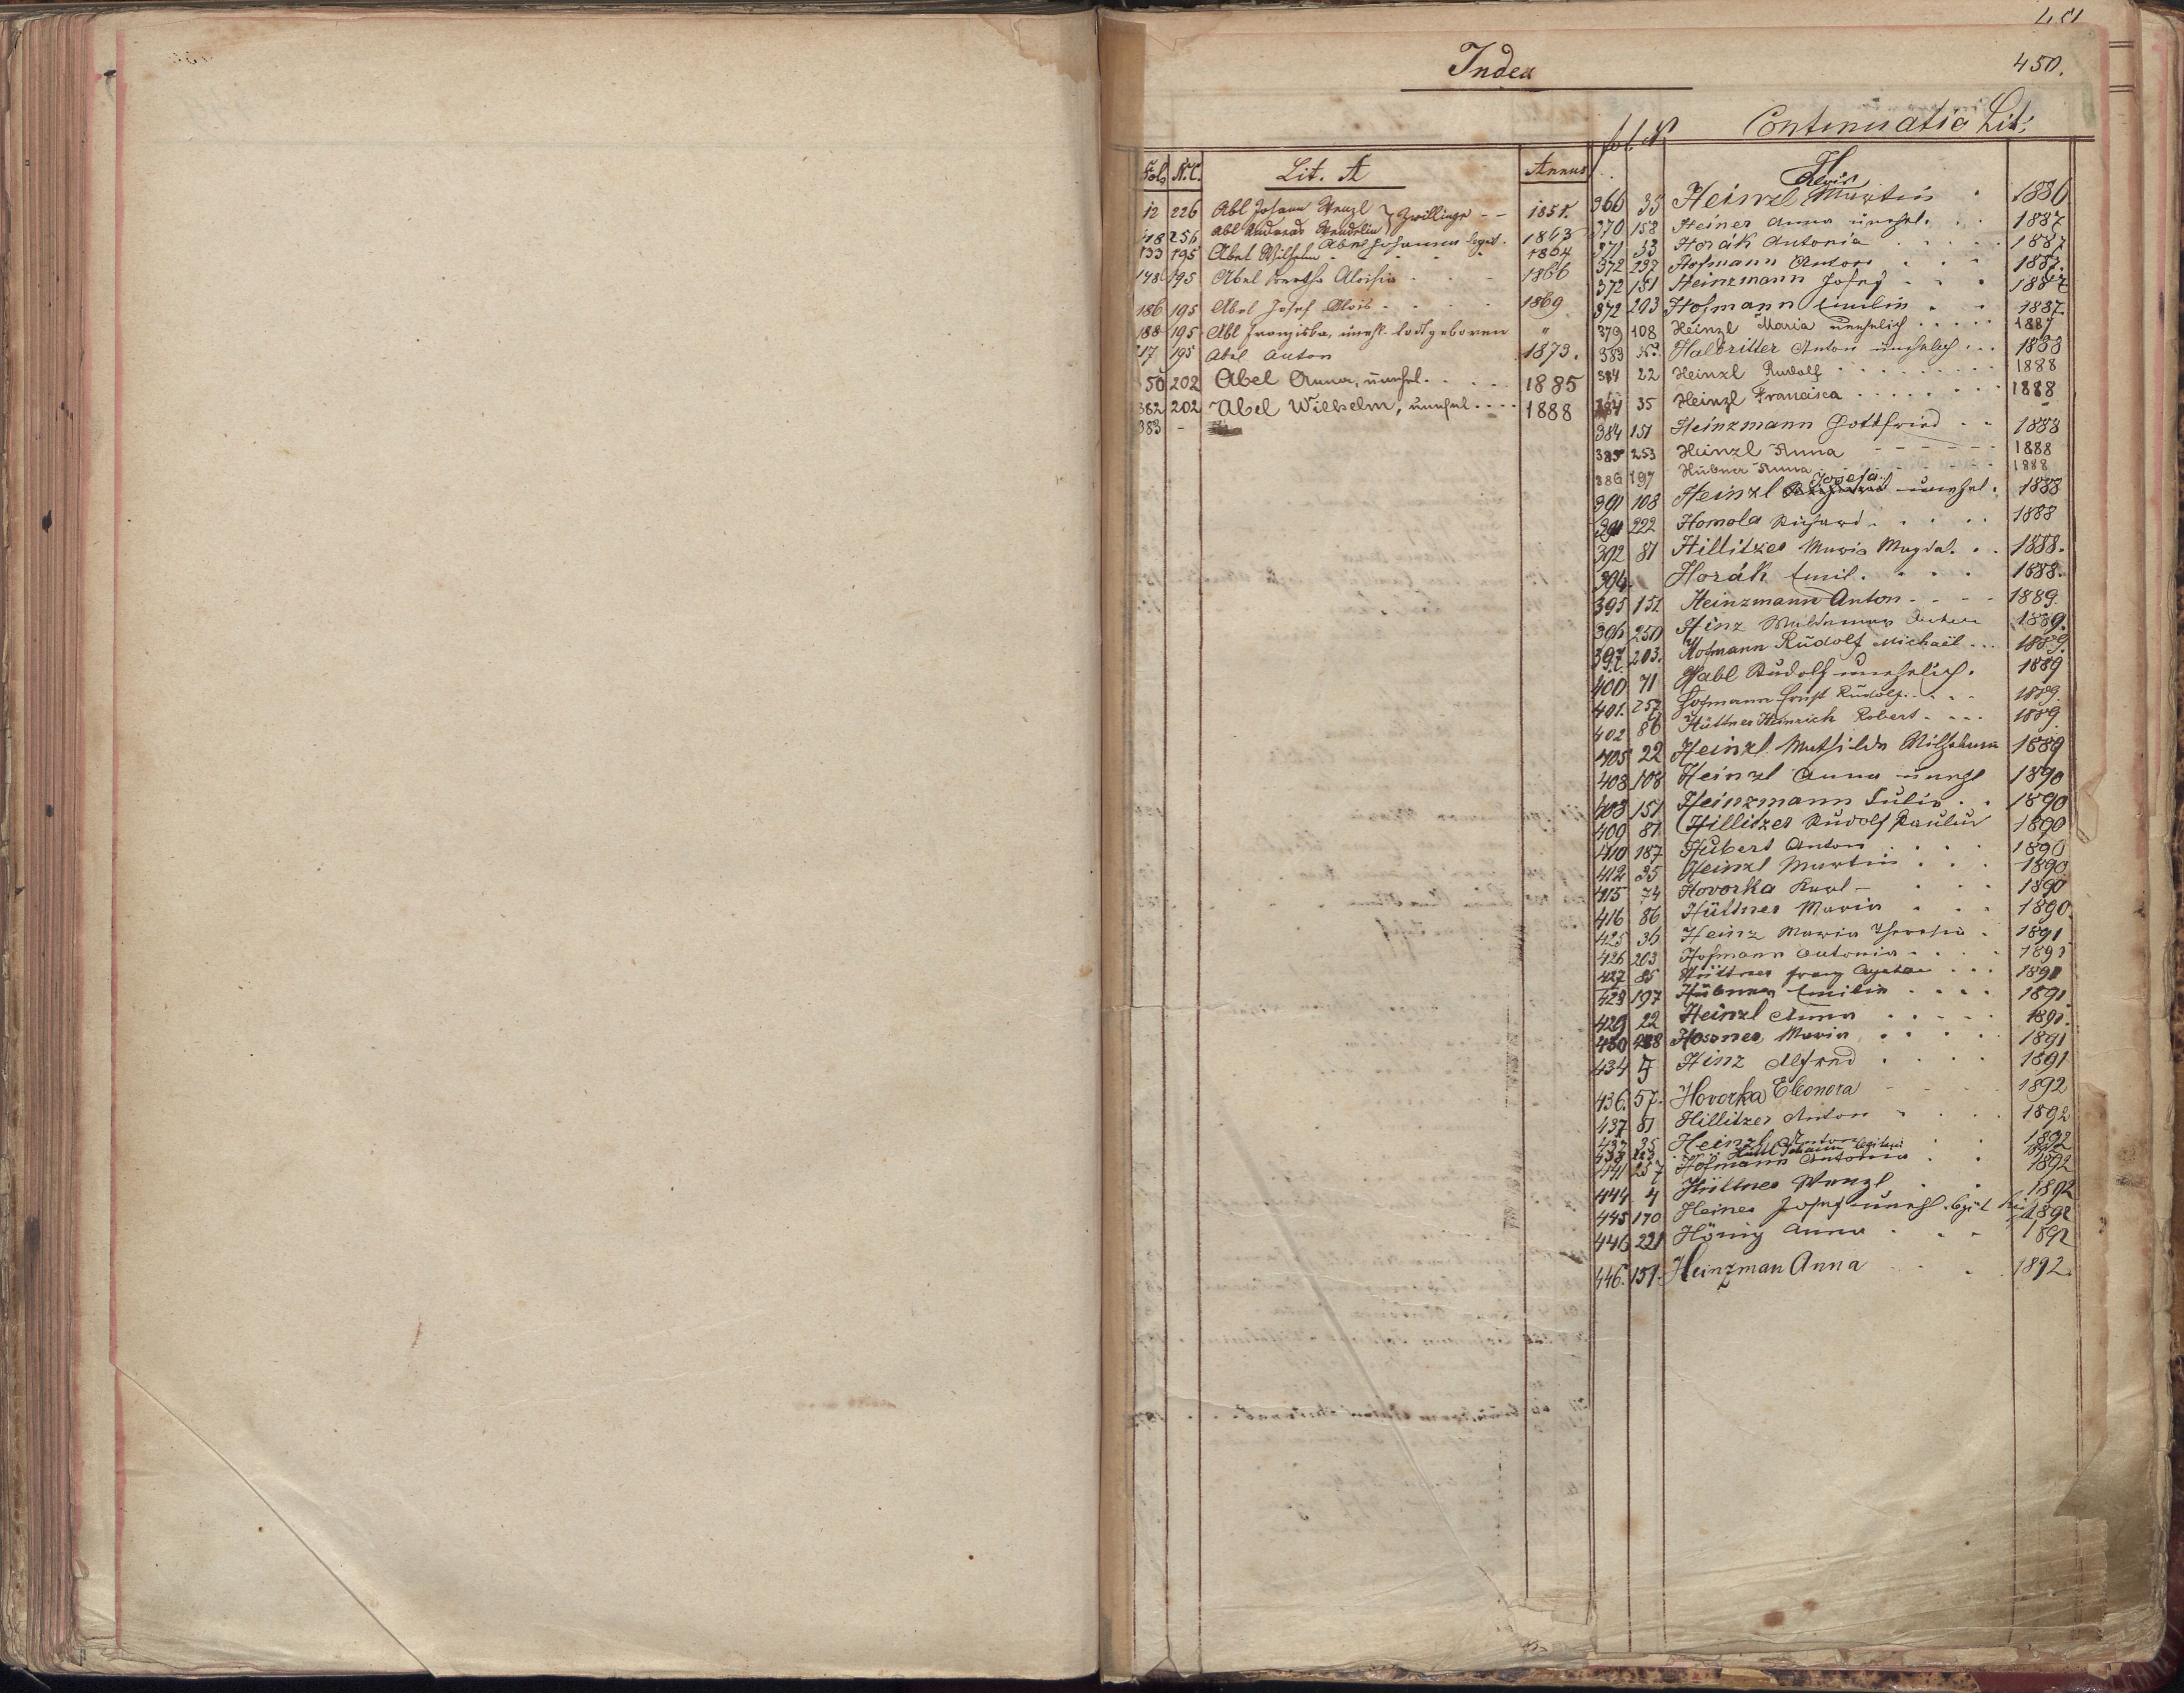 451
Index
450.
Continuatio Lit.
H
Fol. N.C. Lit. A Annus
12 226 Abl Johann Wenzl } Zwillinge - - 1851.
Abl Andreas Wendelin
118 256 Abel Johanna legit. 1863
133 195 Abel Wilhelm 1864
148 195 Abel Bertha Aloisia 1866
186 195 Abel Josef Alois 1869
188 195 Abl Franziska, unehl. todtgeboren "
217 195 Abel Anton 1873.
350 202 Abel Anna, unehel. 1885
382 202 Abel Wilhelm, unehel. 1888
383 -
fol. N.
366 35 Heinzl Martin 1886
370 158 Heiner Anna unehel. 1887
371 33 Horák Antonia 1887
372 237 Hofmann Anton 1887.
372 151 Heinzmann Josef 1887
372 203 Hofmann Emilie 1887
379 108 Heinzl Maria unehelich 1887
383 Halbritter Anton unehelich 1888
384 22 Heinzl Rudolf 1888
384 35 Heinzl Francisca 1888
384 151 Heinzmann Gottfried 1888
385 253 Heinzl Anna 1888
386 197 Hübner Anna 1888
391 108 Heinzl Josefa unehel. 1888
391 222 Homola Richard 1888
392 81 Hillitzer Maria Magdal. 1888.
394. Horák Emil. 1888.
395 151 Heinzmann Anton 1889.
396 250 Hinz Waldemar Anton 1889.
397 203. Hofmann Rudolf Michaël 1889.
400 71 Habl Rudolf unehelich. 1889
401. 257 Hofmann Ernst Rudolf 1889.
402 86 Hüttner Heinrich Robert 1889.
405 22 Heinzl Mathilde Wilhelmine 1889
408 108 Heinzl Anna unehl 1890
408 151 Heinzmann Julie 1890
409 81 Hillitzer Rudolf Paulus 1890
410 187 Hubert Anton 1890
412 35 Heinzl Martin 1890
415 74 Hovorka Karl 1890
416 86 Hüttner Maria 1890.
425 36 Heinz Maria Theresia 1891
426 203 Hofmann Antonia 1891
427 85 Hüttner Franz Cajetan 1891
428 197 Hübner Emilie 1891
429 22 Heinzl Anna 1891.
430 288 Hosner Maria 1891
434 5 Hinz Alfred 1891
436. 57. Hovorka Eleonora 1892
437 81 Hillitzer Anton 1892
437 35 Heinzl Anton 1892
438 223 Hüttl Johann legitimi 1892
441 257 Hofmann Antonia 1892
444 4 Hüttner Wenzl 1892
445 170 Heiner Josef unehl. legit 1892
446 221 Hönig Anna 1892
446. 151. Heinzman Anna 1892.